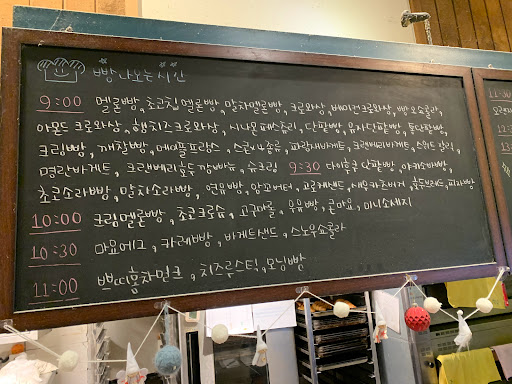 빵 나오는 시간
9:00 메론빵, 초코칩 메론빵, 말차메론빵, 크로와상, 베이컨크로와상, 빵오쇼콜라,
아몬드 크로와상, 햄치즈크로와상, 시나몬페스츄리, 단팥빵, 유자단팥빵, 통단팥빵,
크림빵, 야채빵, 메이플프랑스, 스콘, 파란채바게트, 크랜베리바게트, 스위트 갈릭,
명란바게트, 크랜베리호두 깜빠뉴, 슈크림 9:30 다이호쿠단팥빵, 야끼소바빵,
초코소라빵, 말차소라빵, 연유빵, 앙꼬버터, 고로케샌드, 새우카츠버거, 호두브레드, 피자빵
10:00 크림메론빵, 초콘크슈, 고구마롤, 우유빵, 콘마요, 미니소세지
10:30 마요에그, 카레빵, 바게트샌드, 스노우쇼콜라
11:00 뺘띠홍차밀크, 치즈루스틱, 모닝빵
11:30